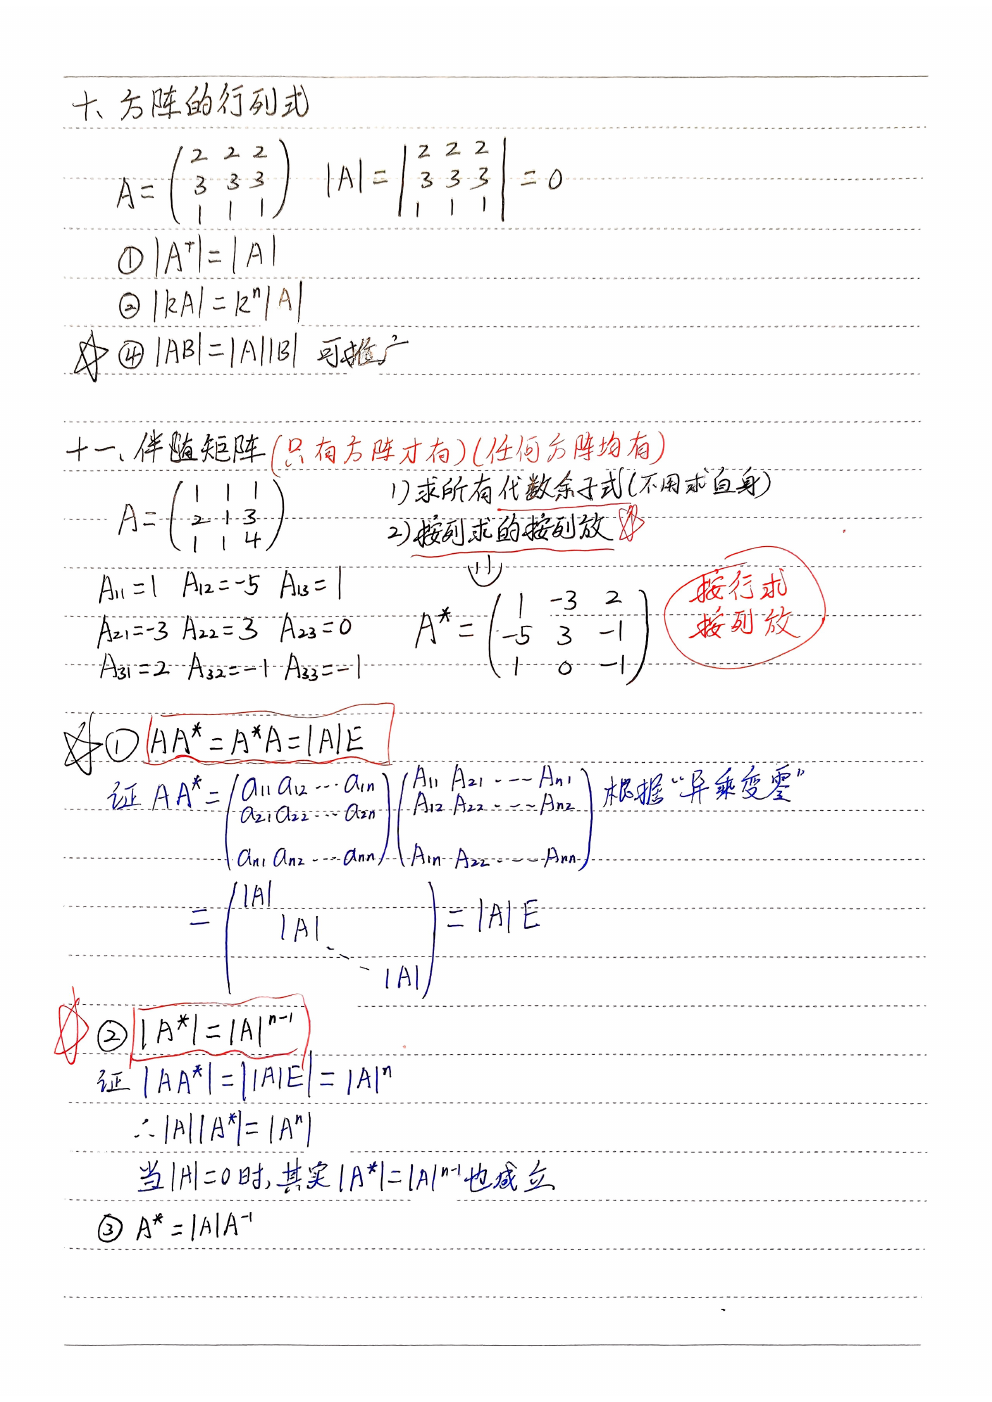 十、方阵的行列式
A=(2 2 2
3 3 3
1 1 1) |A|=|2 2 2
3 3 3
1 1 1|=0
① |Aᵀ|=|A|
② |kA|=kⁿ|A|
☆ ④ |AB|=|A||B| 可推广
十一、伴随矩阵(只有方阵才有)(任何方阵均有)
A=(1 1 1
2 1 3
1 1 4)
1)求所有代数余子式(不用求自身)
2)按列求的按列放☆
A₁₁=1 A₁₂=-5 A₁₃=1
A₂₁=-3 A₂₂=3 A₂₃=0
A₃₁=2 A₃₂=-1 A₃₃=-1
A*=(1 -3 2
-5 3 -1
1 0 -1)
按行求
按列放
☆ ① AA*=A*A=|A|E
证 AA*=(a₁₁ a₁₂ ··· a₁ₙ)(A₁₁ A₂₁ ··· Aₙ₁) 根据“异乘变零”
(a₂₁ a₂₂ ··· a₂ₙ)(A₁₂ A₂₂ ··· Aₙ₂)
(aₙ₁ aₙ₂ ··· aₙₙ)(A₁ₙ A₂₂ ··· Aₙₙ)
=(|A|
|A|
⋱
|A|)=|A|E
☆ ② |A*|=|A|ⁿ⁻¹
证 |AA*|=||A|E|=|A|ⁿ
∴|A||A*|=|Aⁿ|
当|A|=0时,其实|A*|=|A|ⁿ⁻¹也成立
③ A*=|A|A⁻¹